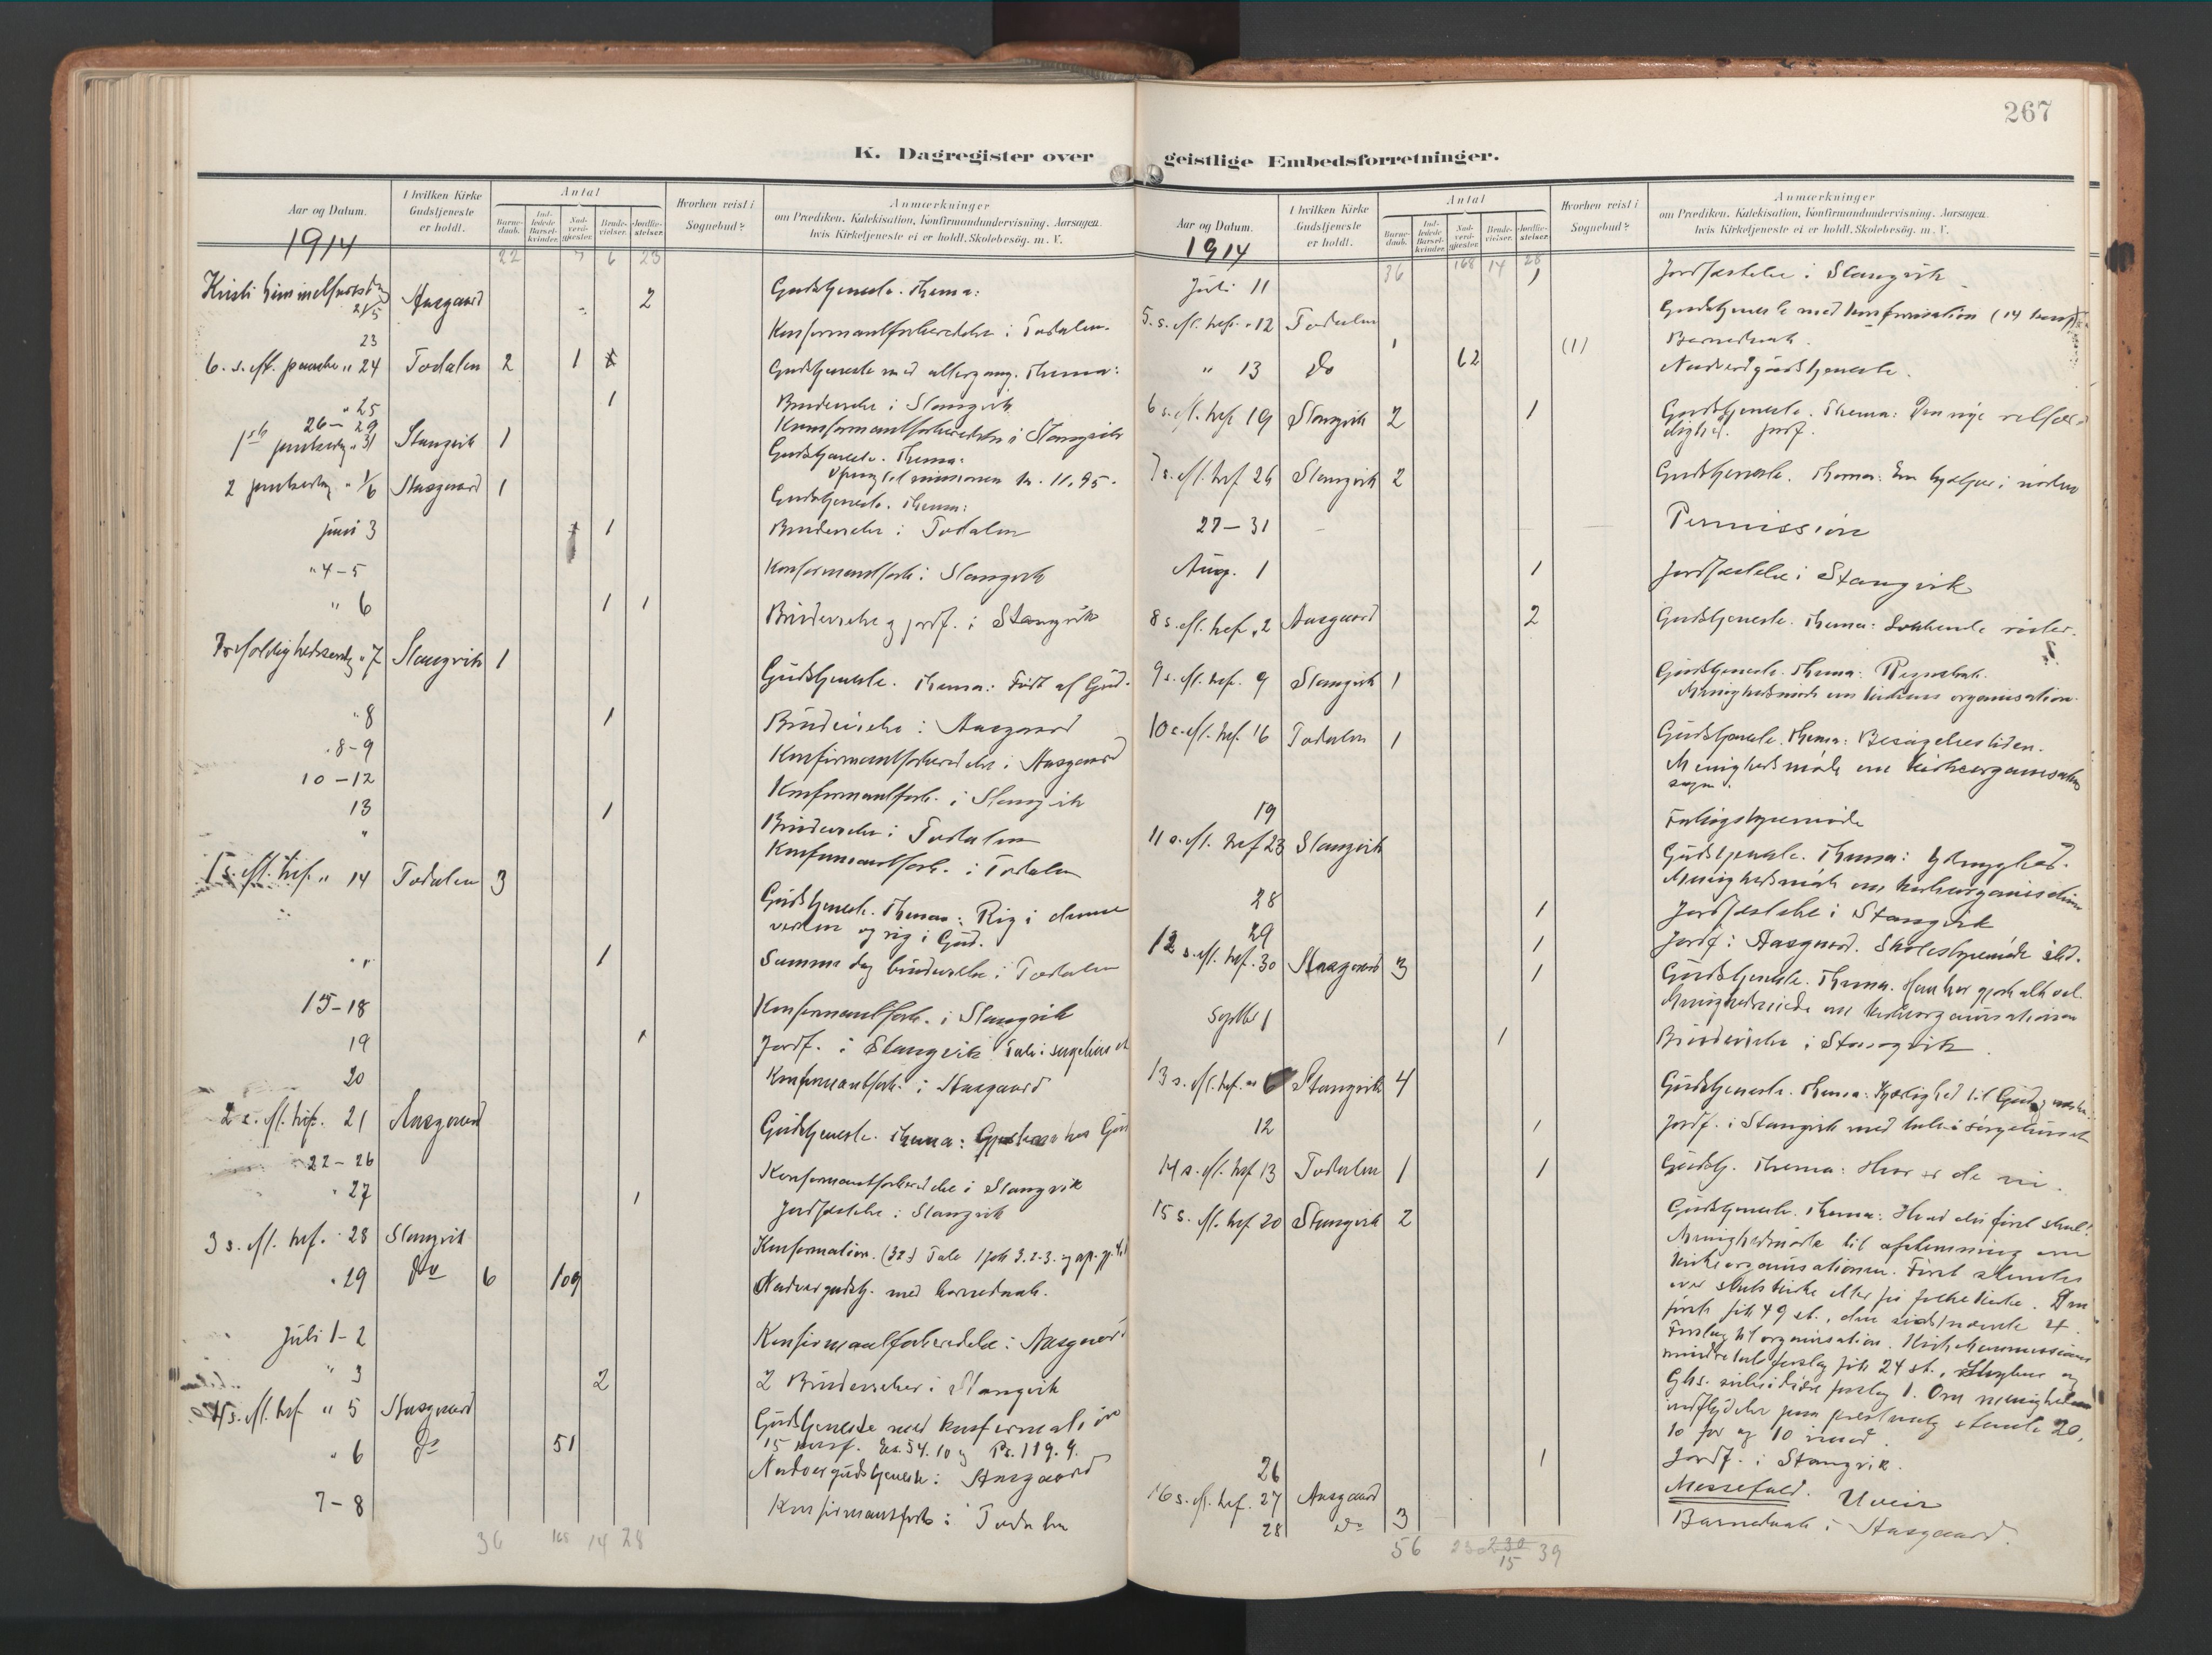 267
K. Dagregister over geistlige Embedsforretninger.
Aar og Datum.
I hvilken Kirke Gudstjeneste er holdt.
Antal
Barnedaab.
Indledede Barselkvinder.
Nadverdgjester.
Brudevielser.
Jordfæstelser.
Hvorhen reist i Sognebud?
Anmærkninger
om Prædiken. Katekisation, Konfirmandundervisning. Aarsagen.
hvis Kirketjeneste ei er holdt. Skolebesøg. m. V.
1914
22 7 6 23
Kristi himmelfartsdag 21/5 Aasgaard 2 Gudstjeneste. Thema:
23 Konfirmantforberedelse i Todalen.
6. s. eft. paaske " 24 Todalen 2 1 Gudstjeneste med altergang. Thema:
" 25 1 Brudevielse i Stangvik
26 – 29 Konfirmantforberedelse i Stangvik
1ste pintsedag " 31 Stangvik 1 Gudstjeneste. Thema:
Ofring til missionen kr. 11.95.
2 pintsedag " 1/6 Aasgaard 1 Gudstjeneste. Thema:
juni 3 1 Brudevielse i Todalen
" 4-5 Konfirmantforb. i Stangvik
" 6 1 1 Brudevielse og jordf. i Stangvik
Trefoldighedssøndag " 7 Stangvik 1 Gudstjeneste. Thema: Født af Gud.
" 8 1 Brudevielse i Aasgaard
" 8-9 Konfirmantforberedelse i Aasgaard
10-12 Konfirmantforb. i Stangvik
13 1 Brudevielse i Todalen
" Konfirmantforb. i Todalen
1 s. eft. tref. " 14 Todalen 3 Gudstjeneste. Thema: Rig i denne
verden og rig i Gud.
" " 1 Samme dag brudevielse i Todalen
15-18 Konfirmantforb. i Stangvik
19 1 Jordf. i Stangvik. Tale i sørgehuset
20 Konfirmantforb. i Aasgaard
2 s. eft. tref. 21 Aasgaard Gudstjeneste. Thema: hos Gud
22-26 Konfirmantforberedelse i Stangvik
" 27 1 Jordfæstelse i Stangvik
3 s. eft. tref. " 28 Stangvik Konfirmation. (32) Tale 1 Joh 3. 2-3. og ap. gj. 4,
" 29 do 6 109 Nadvergudstj. med barnedaab.
Juli 1-2 Konfirmantforberedelse i Aasgaard
" 3 2 2 Brudevielser i Stangvik
4 s. eft. tref " 5 Aasgaard Gudstjeneste med konfirmation
15 konf. Es. 54. 10 og Ps. 119. 9.
" 6 do 51 Nadvergudstjeneste i Aasgaard
7-8 Konfirmantforb i Todalen
36 168 14 28
Aar og Datum.
I hvilken Kirke Gudstjeneste er holdt.
Antal
Barnedaab.
Indledede Barselkvinder.
Nadverdgjester.
Brudevielser.
Jordfæstelser.
Hvorhen reist i Sognebud?
Anmærkninger
om Prædiken. Katekisation, Konfirmandundervisning. Aarsagen.
hvis Kirketjeneste ei er holdt. Skolebesøg. m. V.
1914
36 168 14 28
Juli 11 1 Jordfæstelse i Stangvik
5. s. eft. tref. " 12 Todalen 1 (1) Gudstjeneste med konfirmation (14 konf)
Barnedaab.
" 13 do 62 Nadverdgudstjeneste.
6 s. eft. tref 19 Stangvik 2 1 Gudstjeneste. Thema: Den nye retfær-
dighed. Jordf.
7 s. eft. tref 26 Stangvik 2 Gudstjeneste. Thema: En hjælper i nøden
27-31 Permission
Aug. 1 1 Jordfæstelse i Stangvik
8 s. eft. tref. " 2 Aasgaard 2 Gudstjeneste. Thema: Lokkende røster.
9 s. eft. tref. 9 Stangvik 1 Gudstjeneste. Thema: Regnskab.
Menighedsmøde om kirkens organisation.
10 s. eft. tref. 16 Todalen 1 Gudstjeneste. Thema: Besøgelsestiden.
Menighedsmøde om kirkeorganisations
sagen.
19 Forligstyremøde
11 s. eft. tref 23 Stangvik Gudstjeneste. Thema: Ydmyghed.
Menighedsmøde om kirkeorganisation
28 1 Jordfæstelse i Stangvik
29 1 Jordf. i Aasgaard. Skolestyremøde
12 s. eft. tref. 30 Aasgaard 3 1 Gudstjeneste. Thema. Han har gjort alt vel.
Menighedsmøde om kirkeorganisationen
Septbr 1 1 Brudevielse i Stangvik.
13 s. eft. tref. " 6 Stangvik 4 Gudstjeneste. Thema: Kjærlighed til Gud og næsten.
12 1 Jordf. i Stangvik med tale i sørgehuset
14 s. eft. tref 13 Todalen 1 1 Gudstj. Thema: Hvor er de ni.
15 s. eft. tref 20 Stangvik 2 Gudstjeneste. Thema: Hvad der først skal!
Menighedsmøde til afstemning om
kirkeorganisationen. Først stemtes
over statskirke eller fri folkekirke. Den
første fik 49 st., den sidstnævnte 4.
Forslag til organisation. Kirkekommissionens
mindretals forslag fik 24 st.,
Ghs. subsidiære forslag 1. Om menighedens
indflydelse paa prestevalg stemte 20,
10 for og 10 imod.
26 1 Jordf. i Stangvik.
16 s. eft. tref. 27 Aasgaard Messefald. Uveir
28 do 3 Barnedaab i Aasgaard.
56 230 15 39